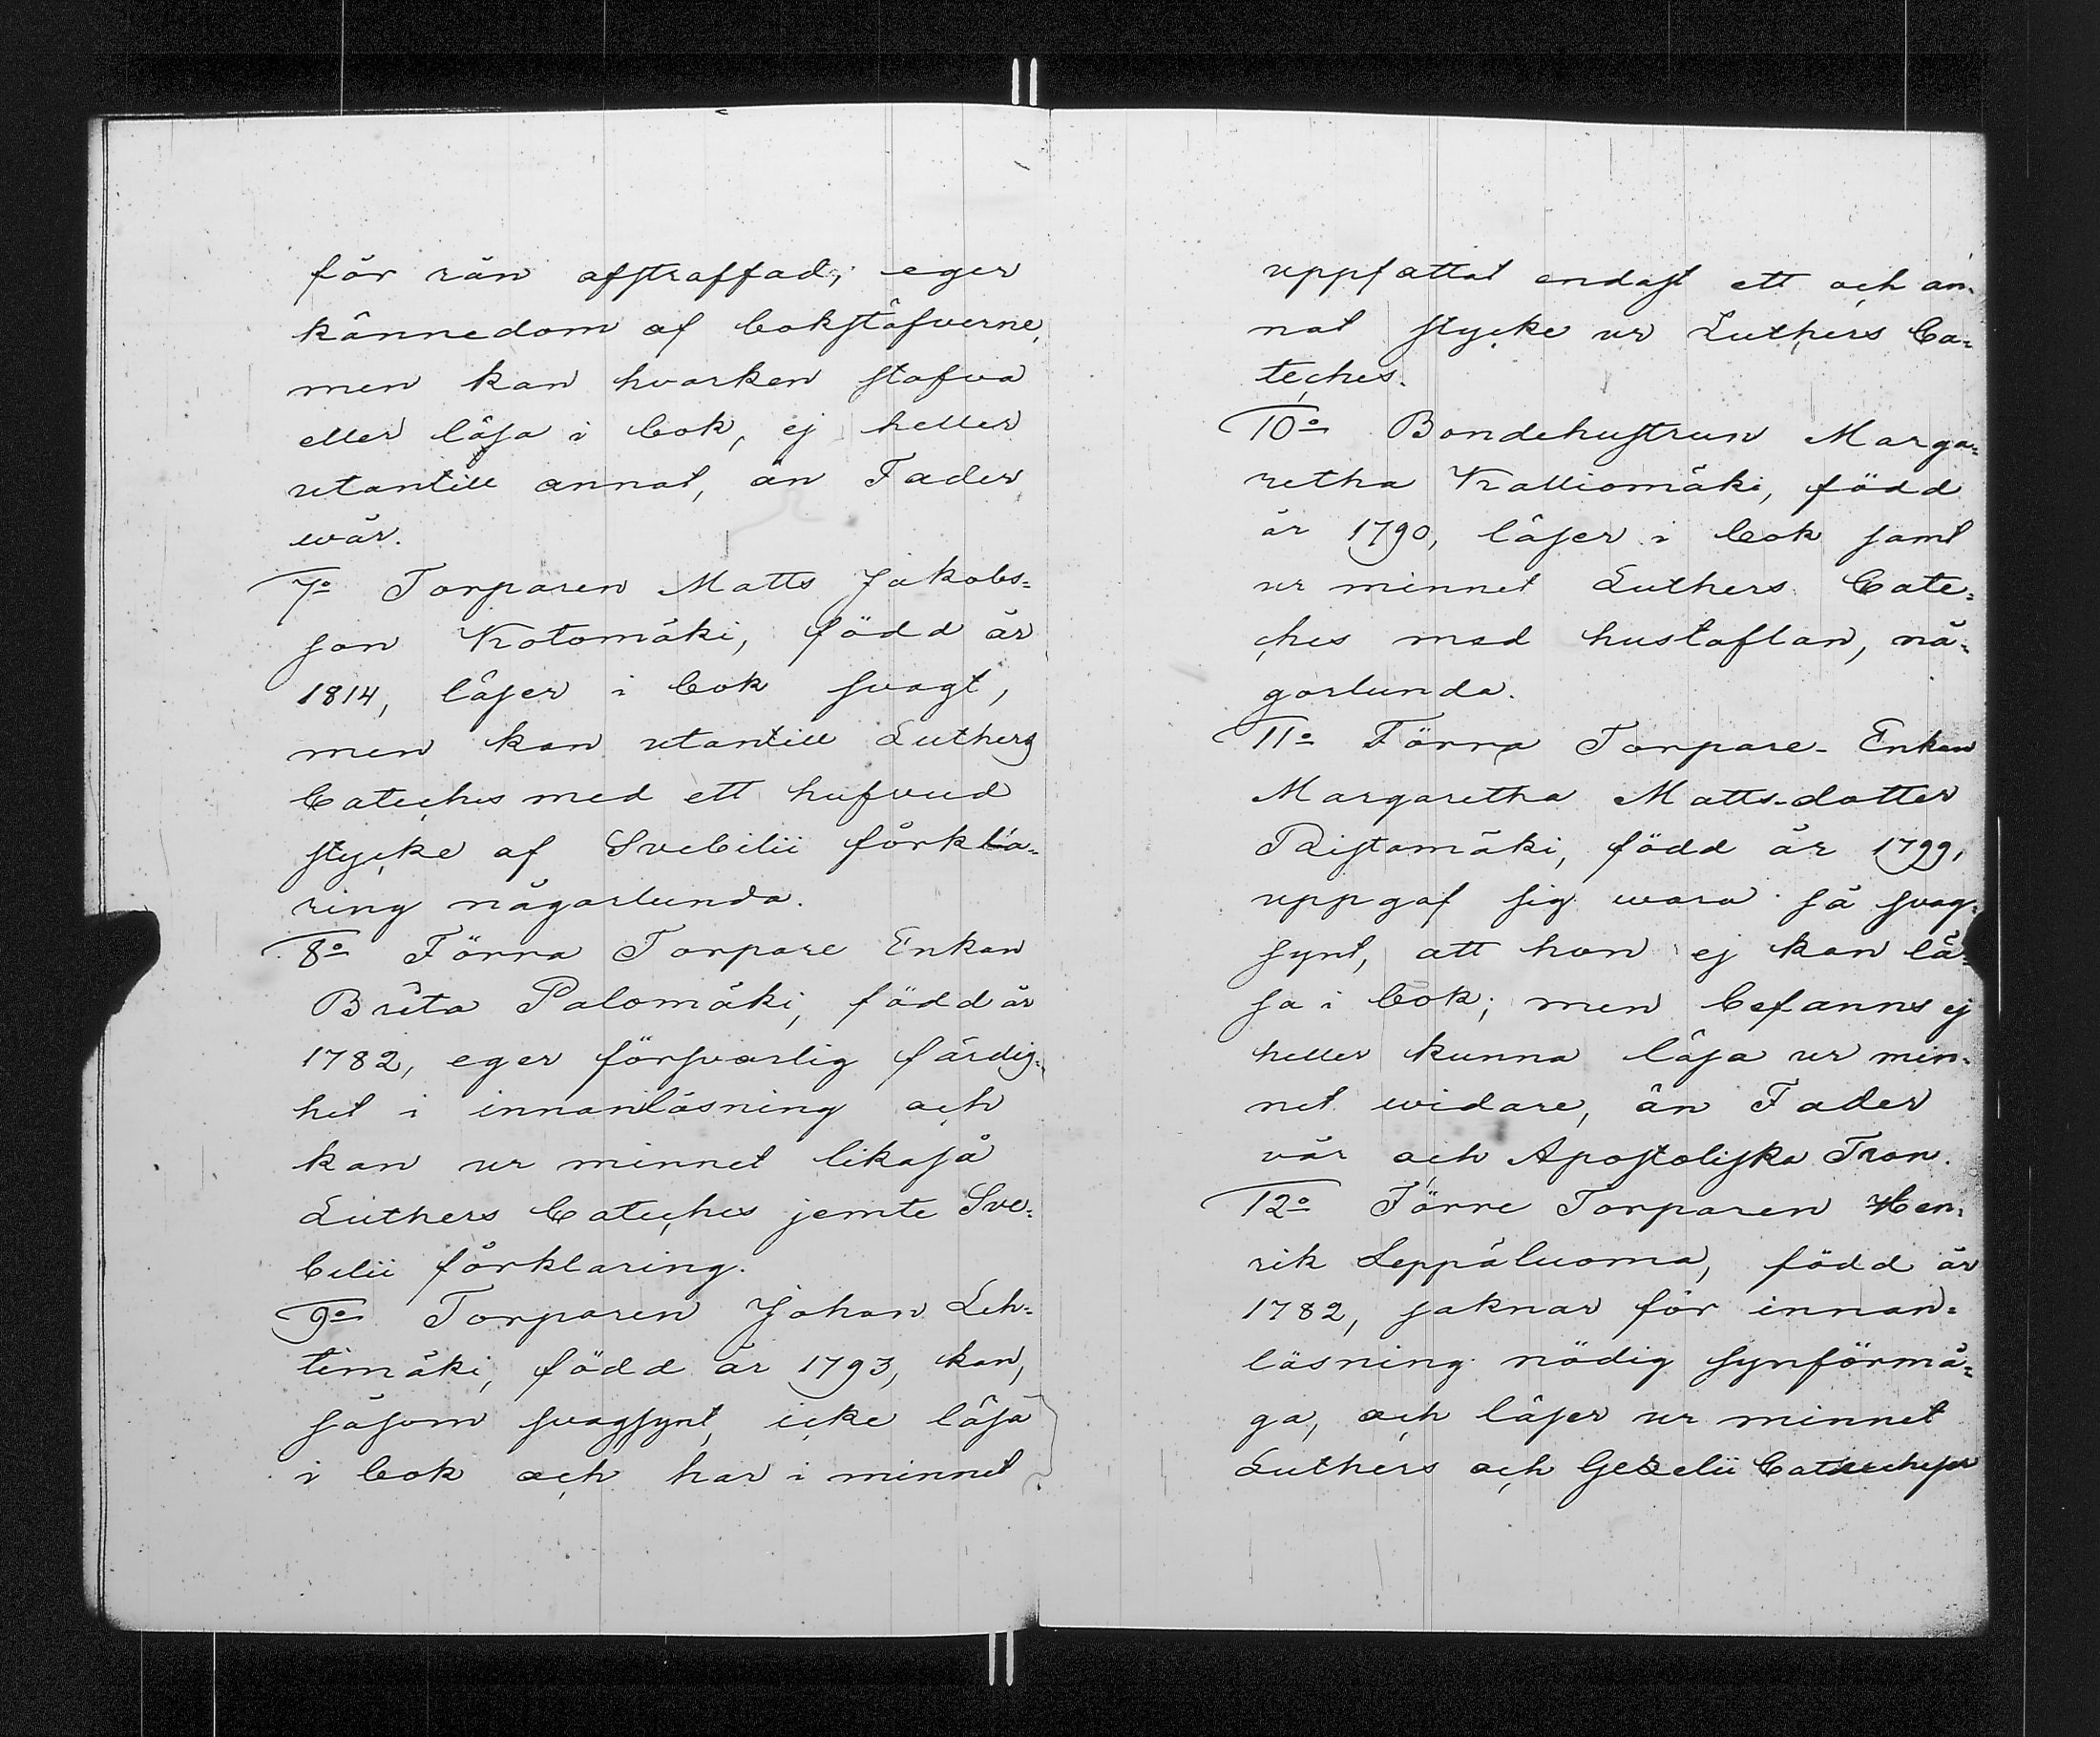 för rån afstraffad; eger
kännedom af bokstäfverne,
men kan hvarken stafva
eller läsa i bok, ej heller
utantill annat, än Fader
wår.
7o Torparen Matts Jakobs=
son Kotomäki, född år
1814, läser i bok svagt,
men kan utantill Luthers
Cateches med ett hufvud
stycke af Svebilii förkla=
ring någorlunda.
8o Förra Torpare Enkan
Brita Palomäki, född år
1782, eger försvarlig färdig=
het i innanläsning och
kan ur minnet likaså
Luthers Cateches jemte Sve=
bilii förklaring.
9o Torparen Johan Leh=
timäki, född år 1793, kan,
såsom svagsynt, icke läsa
i bok och har i minnet
uppfattat endast ett och an=
nat stycke ur Luthers Ca=
teches.
10o Bondehustrun Marga=
retha Kalliomäki, född
år 1790, läser i bok samt
ur minnet Luthers Cate=
ches med hustaflan, nå=
gorlunda.
11o Förra Torpare-Enkan
Margaretha Matts-dotter
Ristamäki, född år 1799,
uppgaf sig wara så svag=
synt, att hon ej kan lä=
sa i bok; men befanns ej
heller kunna läsa ur min=
net widare, än Fader
vår och Apostoliska Tron.
12o Förre Torparen Hen=
rik Leppäluoma, född år
1782, saknar för innan=
läsning nödig synförmå=
ga, och läser ur minnet
Luthers och Gezelii Catecheser